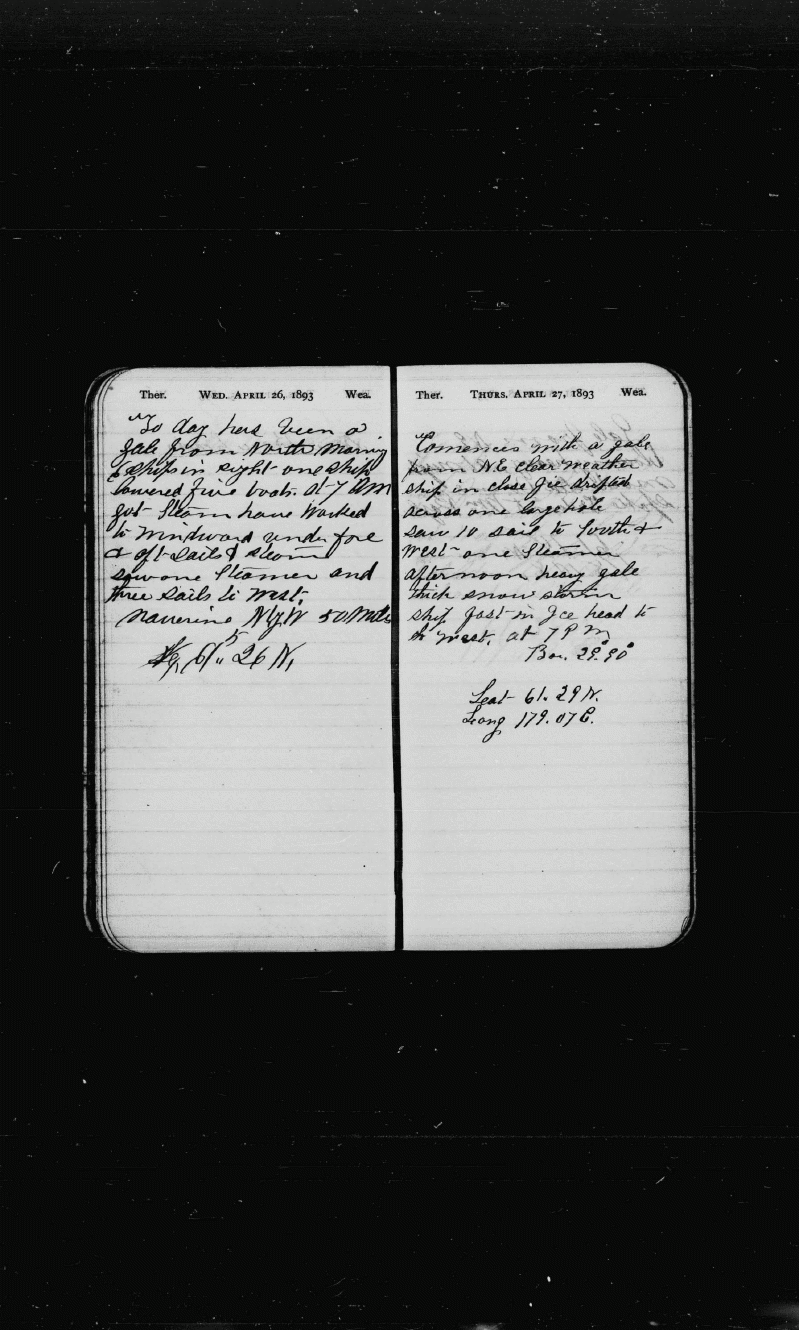 Ther. WED. APRIL 26, 1893 Wea.
"To day has been a
gale from North Morning
6 ships in sight one ship
lowered five boats. at 7 AM
got Steam have Worked
to Windward under fore
& aft Sails & steam
saw one Steamer and
three Sails to West,
Naverine N by W 50 Miles
61 26 N,
Ther. THURS. APRIL 27, 1893 Wea.
"Comences with a gale
from NE Clear weather
ship in close Ice drifted
across one large hole
saw 10 sail to South &
West one Steamer
afternoon heavy gale
thick snow storm
ship fast in Ice head to
West, at 7 PM
Bar. 29.90
Leat 61.29 N.
Long 179.07 E.